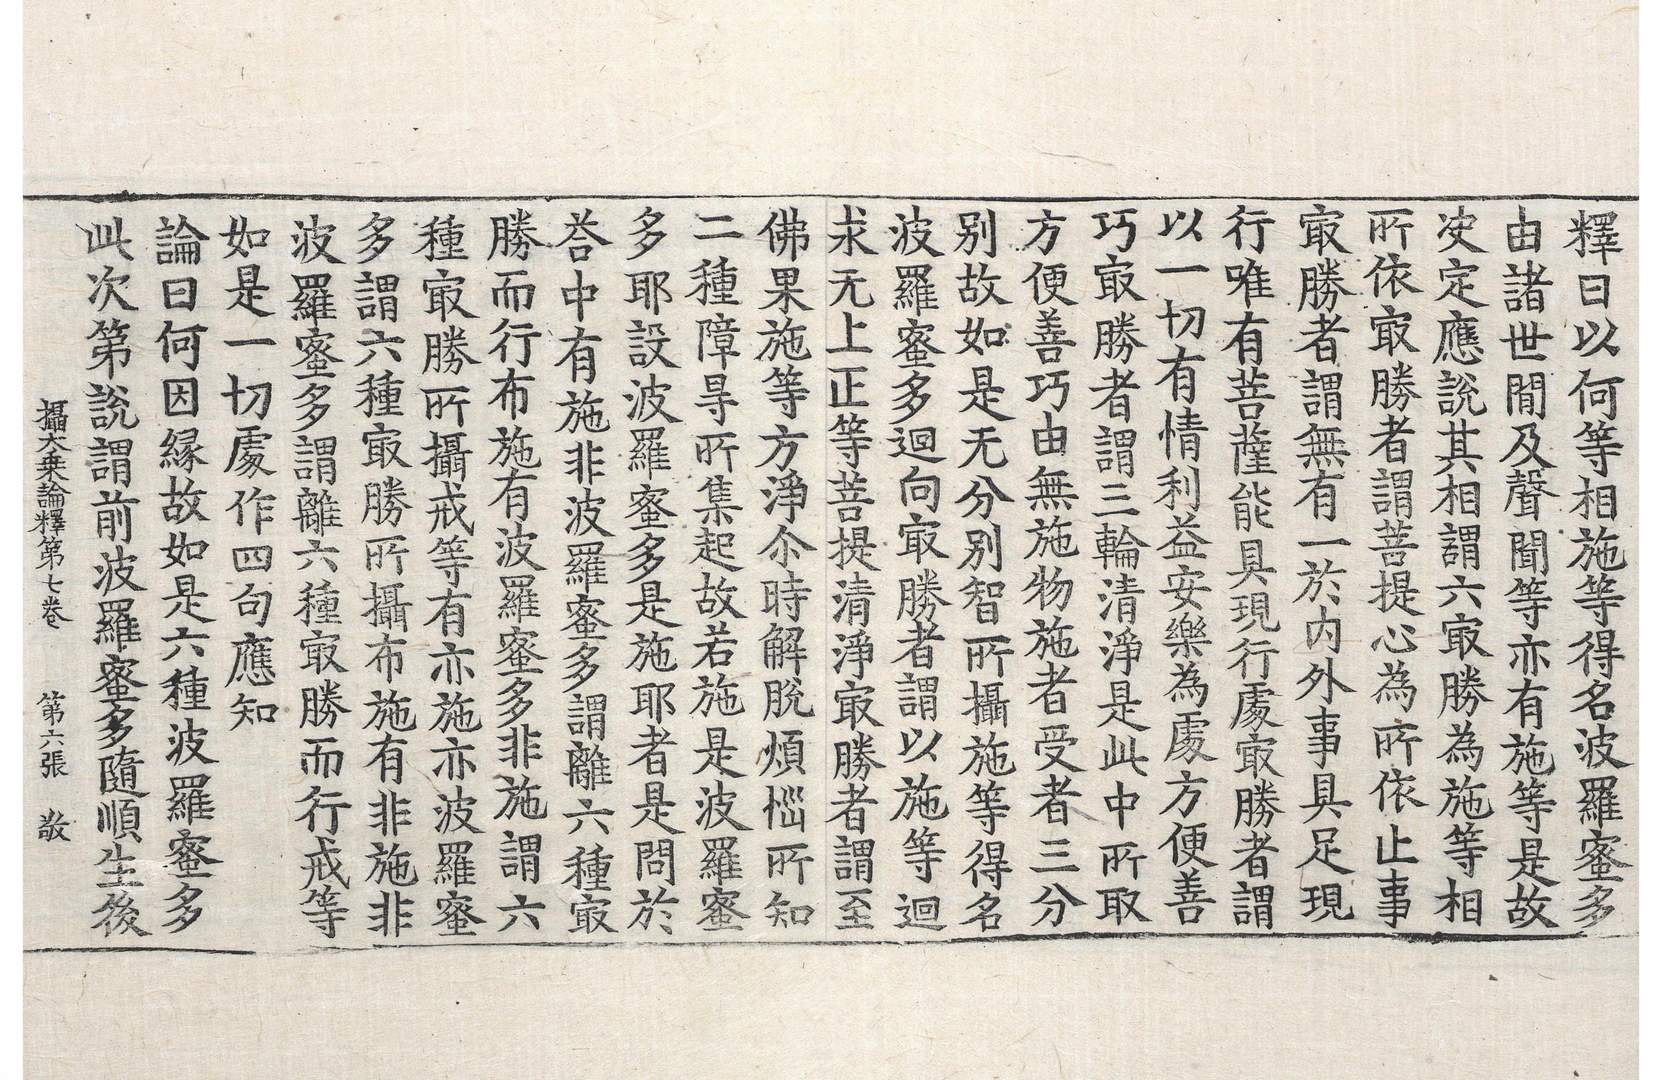 釋曰以何等相施等得名波羅蜜多
由諸世間及聲聞等亦有施等是故
决定應說其相謂六㝡勝為施等相
所依㝡勝者謂菩提心為所依止事
㝡勝者謂無有一於内外事具足現
行唯有菩薩能具現行處㝡勝者謂
以一切有情利益安樂為處方便善
巧㝡勝者謂三輪清淨是此中所取
方便善巧由無施物施者受者三分
别故如是无分别智所攝施等得名
波羅蜜多迴向㝡勝者謂以施等迴
求无上正等菩提清淨㝡勝者謂至
佛果施等方淨尒時解脫煩惱所知
二種障㝵所集起故若施是波羅蜜
多耶設波羅蜜多是施耶者是問於
荅中有施非波羅蜜多謂離六種㝡
勝而行布施有波羅蜜多非施謂六
種㝡勝所攝戒等有亦施亦波羅蜜
多謂六種㝡勝所攝布施有非施非
波羅蜜多謂離六種㝡勝而行戒等
如是一切處作四句應知
論曰何因緣故如是六種波羅蜜多
此次第說謂前波羅蜜多隨順生後
攝大乗論釋第七卷　第六張　敬